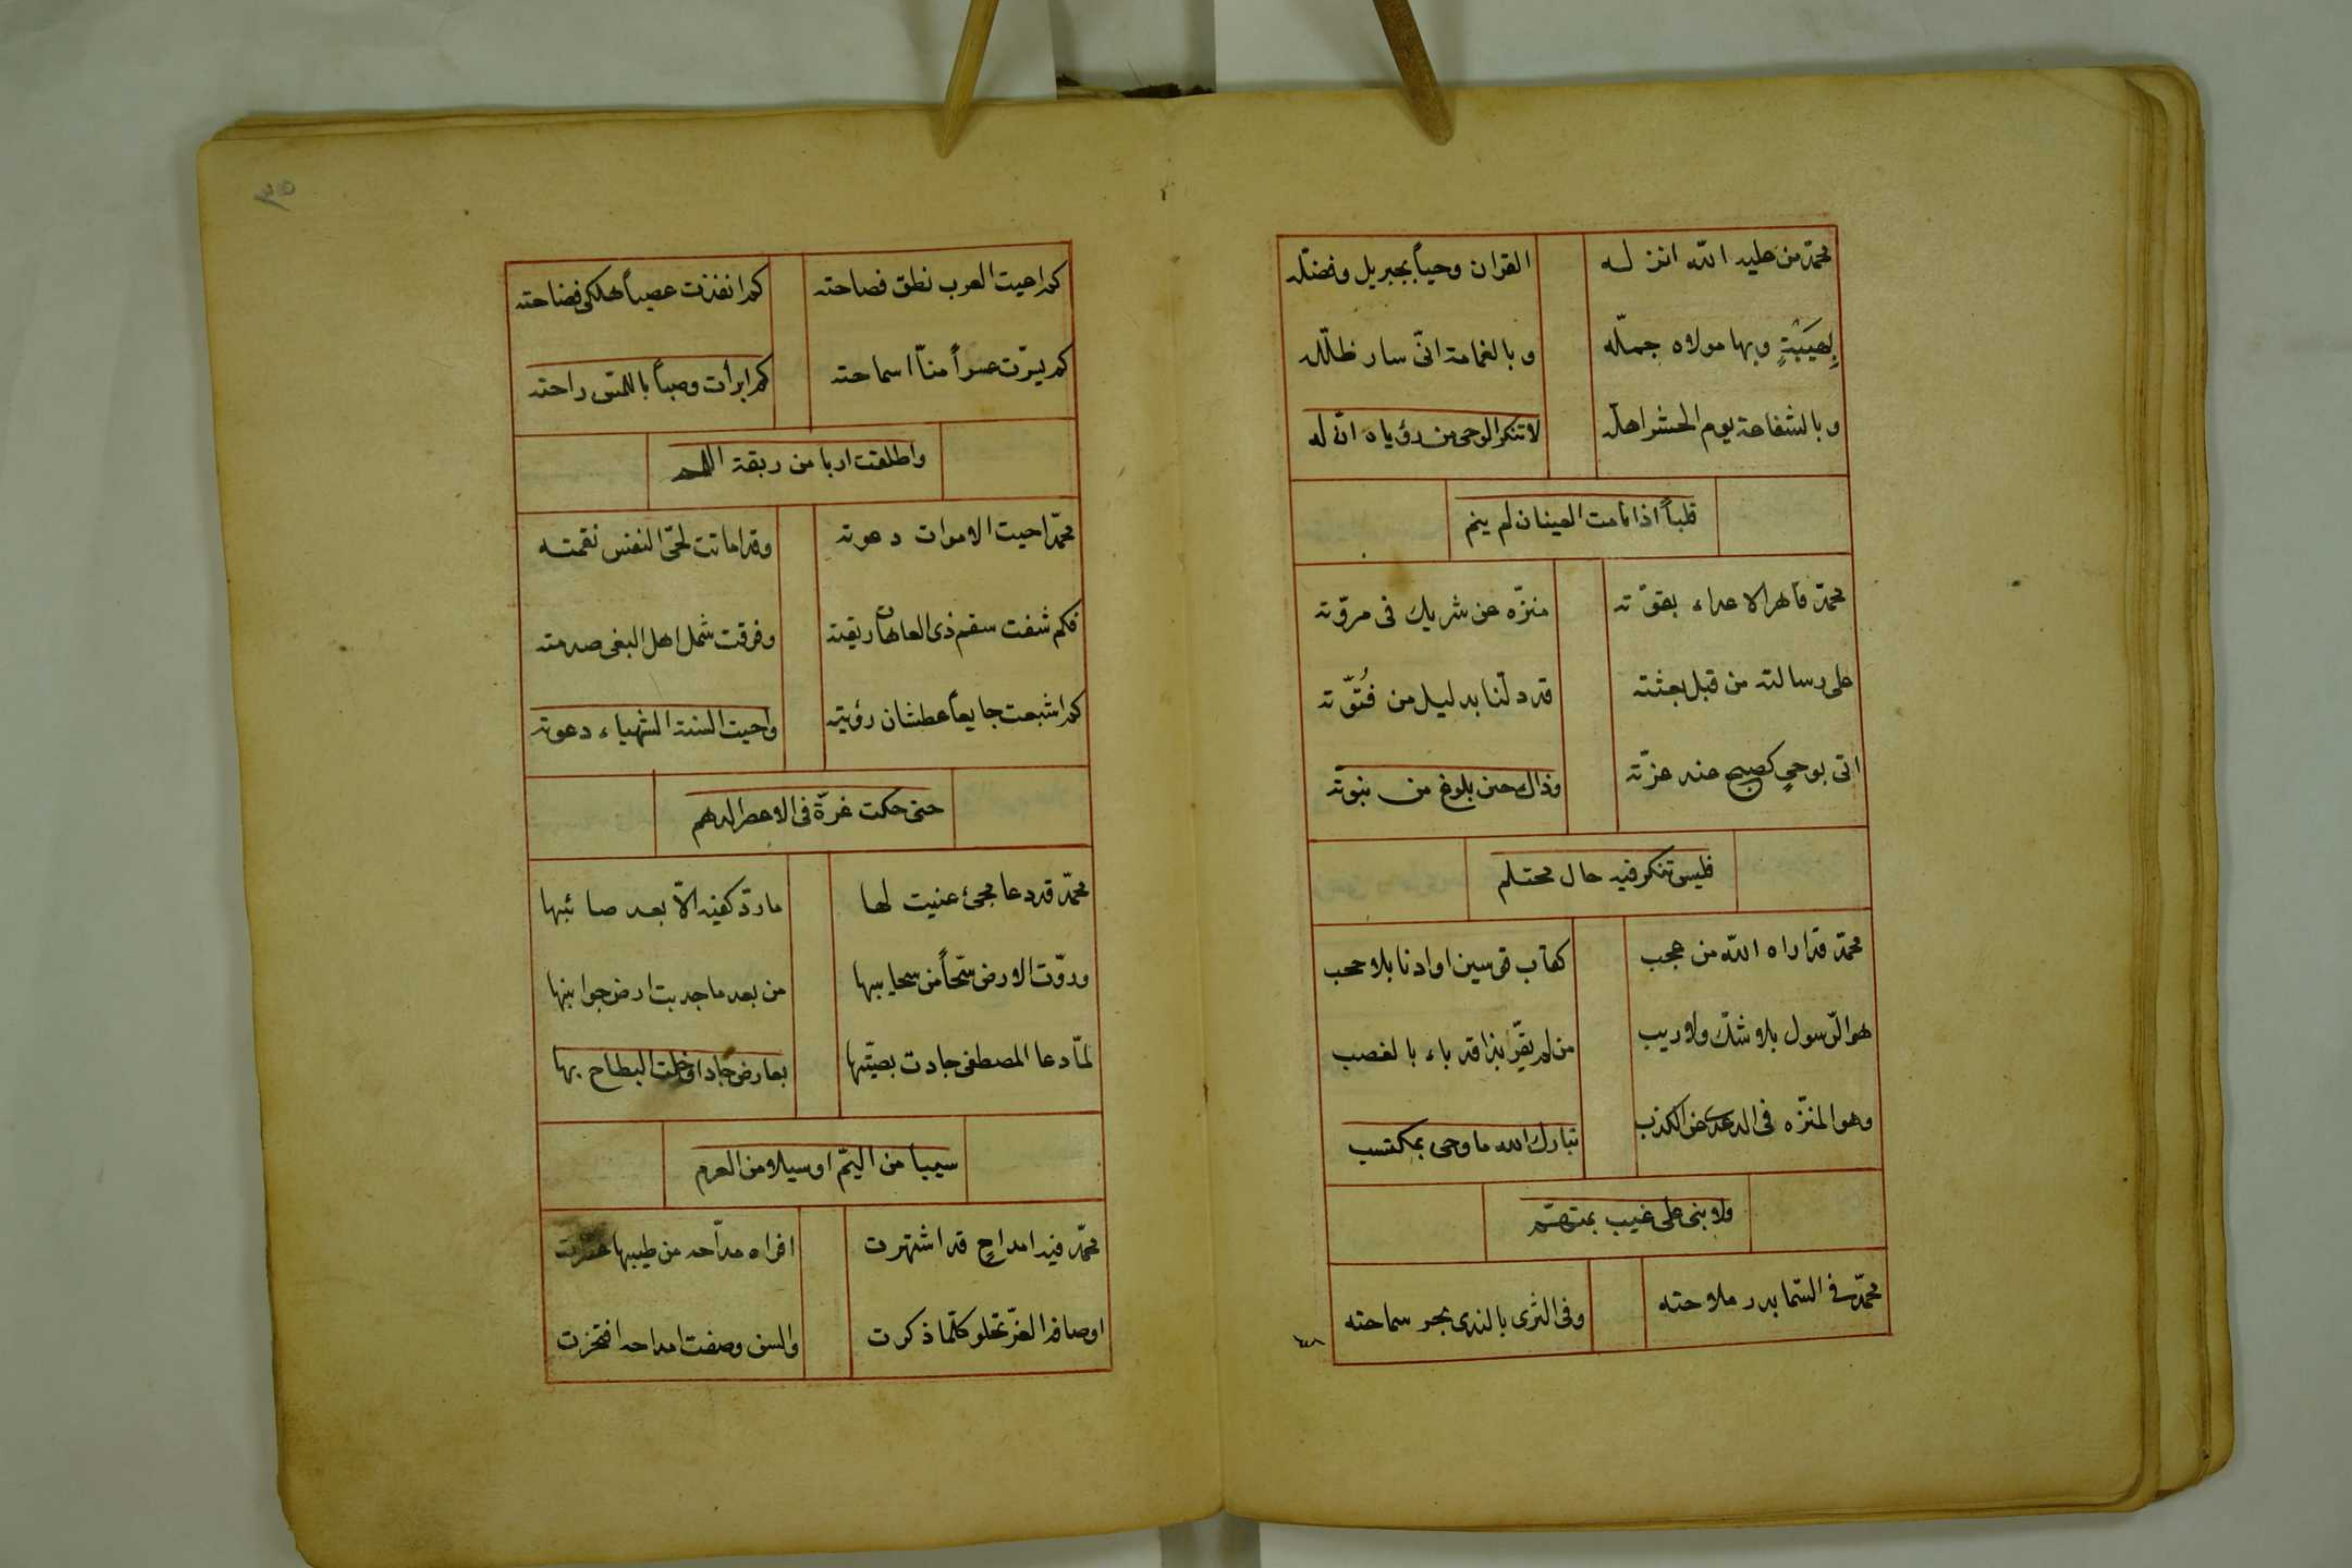 محمّد من عليه الله انزله القران وحياً بجبريل وفضّله
لِهَيْبَتٍ وبها مولاه جمّله وبالغمامة انّى سار ظلّله
وبالشفاعة يوم الحشر اهلّه لا تنكر الوحى من رؤياه انّ له
قلباً اذا نامت العينان لم ينم
محمّد قاهر الاعداء بقوّته منزّه عن شريك فى مروّته
على رسالته من قبل بعثته قد دلّنا بدليل من فُتُوّته
اتى بوحىٍ كصبح عند عزّته وذاك حين بلوغ من نبوّته
فليس تنكر فيه حال محتلم
محمّد قد اراه الله من عجب كقاب قوسين او ادنا بلا حجب
هو الرّسول بلا شكّ ولا ريب من لم يقرّ بذا قد باء بالغصب
وهو المنزّه فى عن الكذب تبارك الله ما وحى بمكتسب
ولا بنى على غيب بمتهّم
محمّد فى السّما بدر ملاحته وفى الثرى بالندى بحر سماحته
كم اعيت العرب نطق فصاحته كم انفذت عصباً هلكى فضاحته
كم يسّرت عسراً منّا اسماحته كم ابرأت وصباً باللمس راحته
واطلقت اربا من ربقة اللمم
محمّد احيت الاموات دعوته وقد اماتت لحىّ النفس نقمته
فكم شفت سقم ذى العاهات ريقته وفرقت شمل اهل البغى صدمته
كم اشبعت جايعاً عطشان رؤيته واحيت السنة الشهباء دعوته
حتى حكت غرّة فى الاعصر الدهم
محمّد قد دعا مجئ عنيت لها ما ردّ كفيه الّا بعد صائبها
وروّت الارض سحّاً من سحايبها من بعد ما جدبت ارض جوانبها
لمّا دعا المصطفى جادت بصيّبها بعارض جاد او خلت البطاح بها
سيبا من اليمّ او سيلا من العرم
محمّد فيه امداحٍ قد اشتهرت افواه مدّاحه من طيبها
اوصافه الغرّ تحلو كلّما ذكرت والسن وصفت امداحه افتخرت